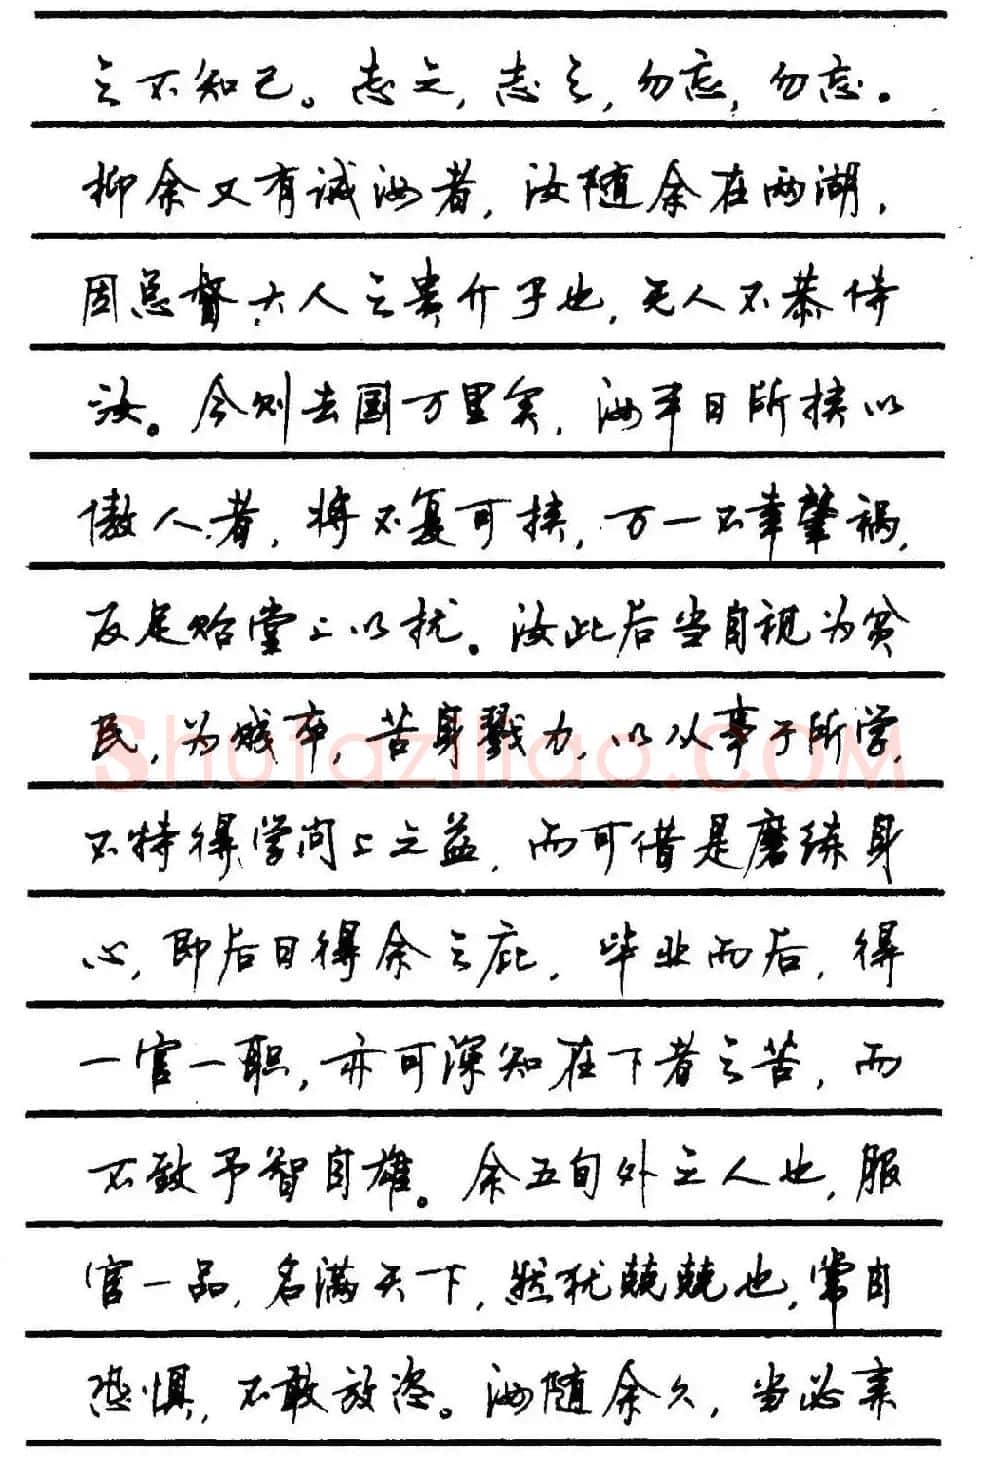 之不知己。志之，志之，勿忘，勿忘。
抑余又有诫汝者，汝随余在两湖，
固总督大人之贵介子也，无人不恭待
汝。今则去国万里矣，汝平日所挟以
傲人者，将不复可挟，万一不幸肇祸，
反足贻堂上以忧。汝此后当自视为贫
民，为贱卒，苦身戮力，以从事于所学，
不特得学问上之益，而可借是磨练身
心，即后日得余之庇，毕业而后，得
一官一职，亦可深知在下者之苦，而
不致予智自雄。余五旬外之人也，服
官一品，名满天下，然犹兢兢也，常自
恐惧，不敢放恣。汝随余久，当必亲
Shufaziliao.COM